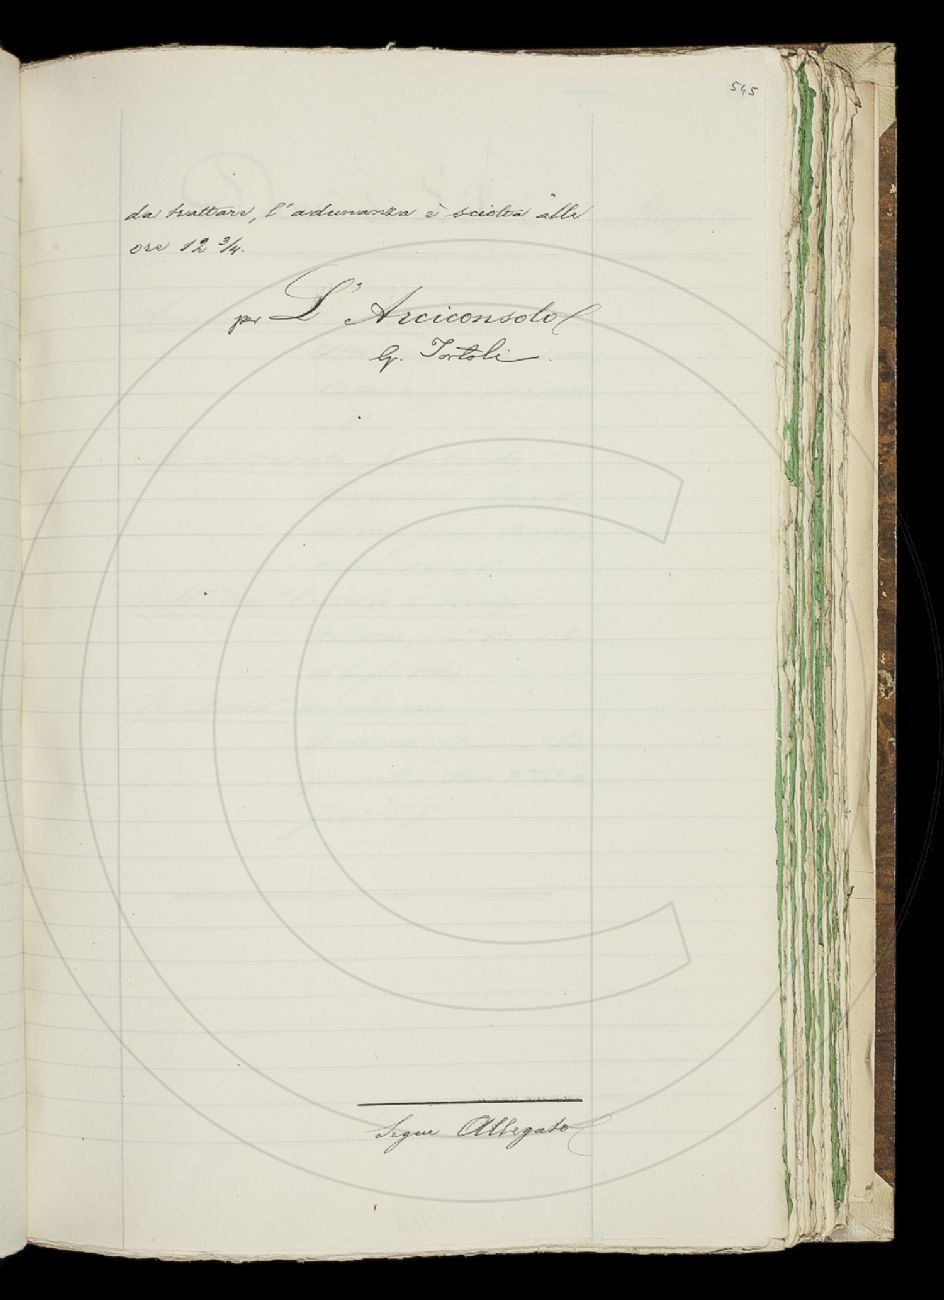 545
da trattare, l'adunanza è sciolta alle
ore 12 3/4.
per L'Arciconsolo
G. Tortoli.
Segue Allegato